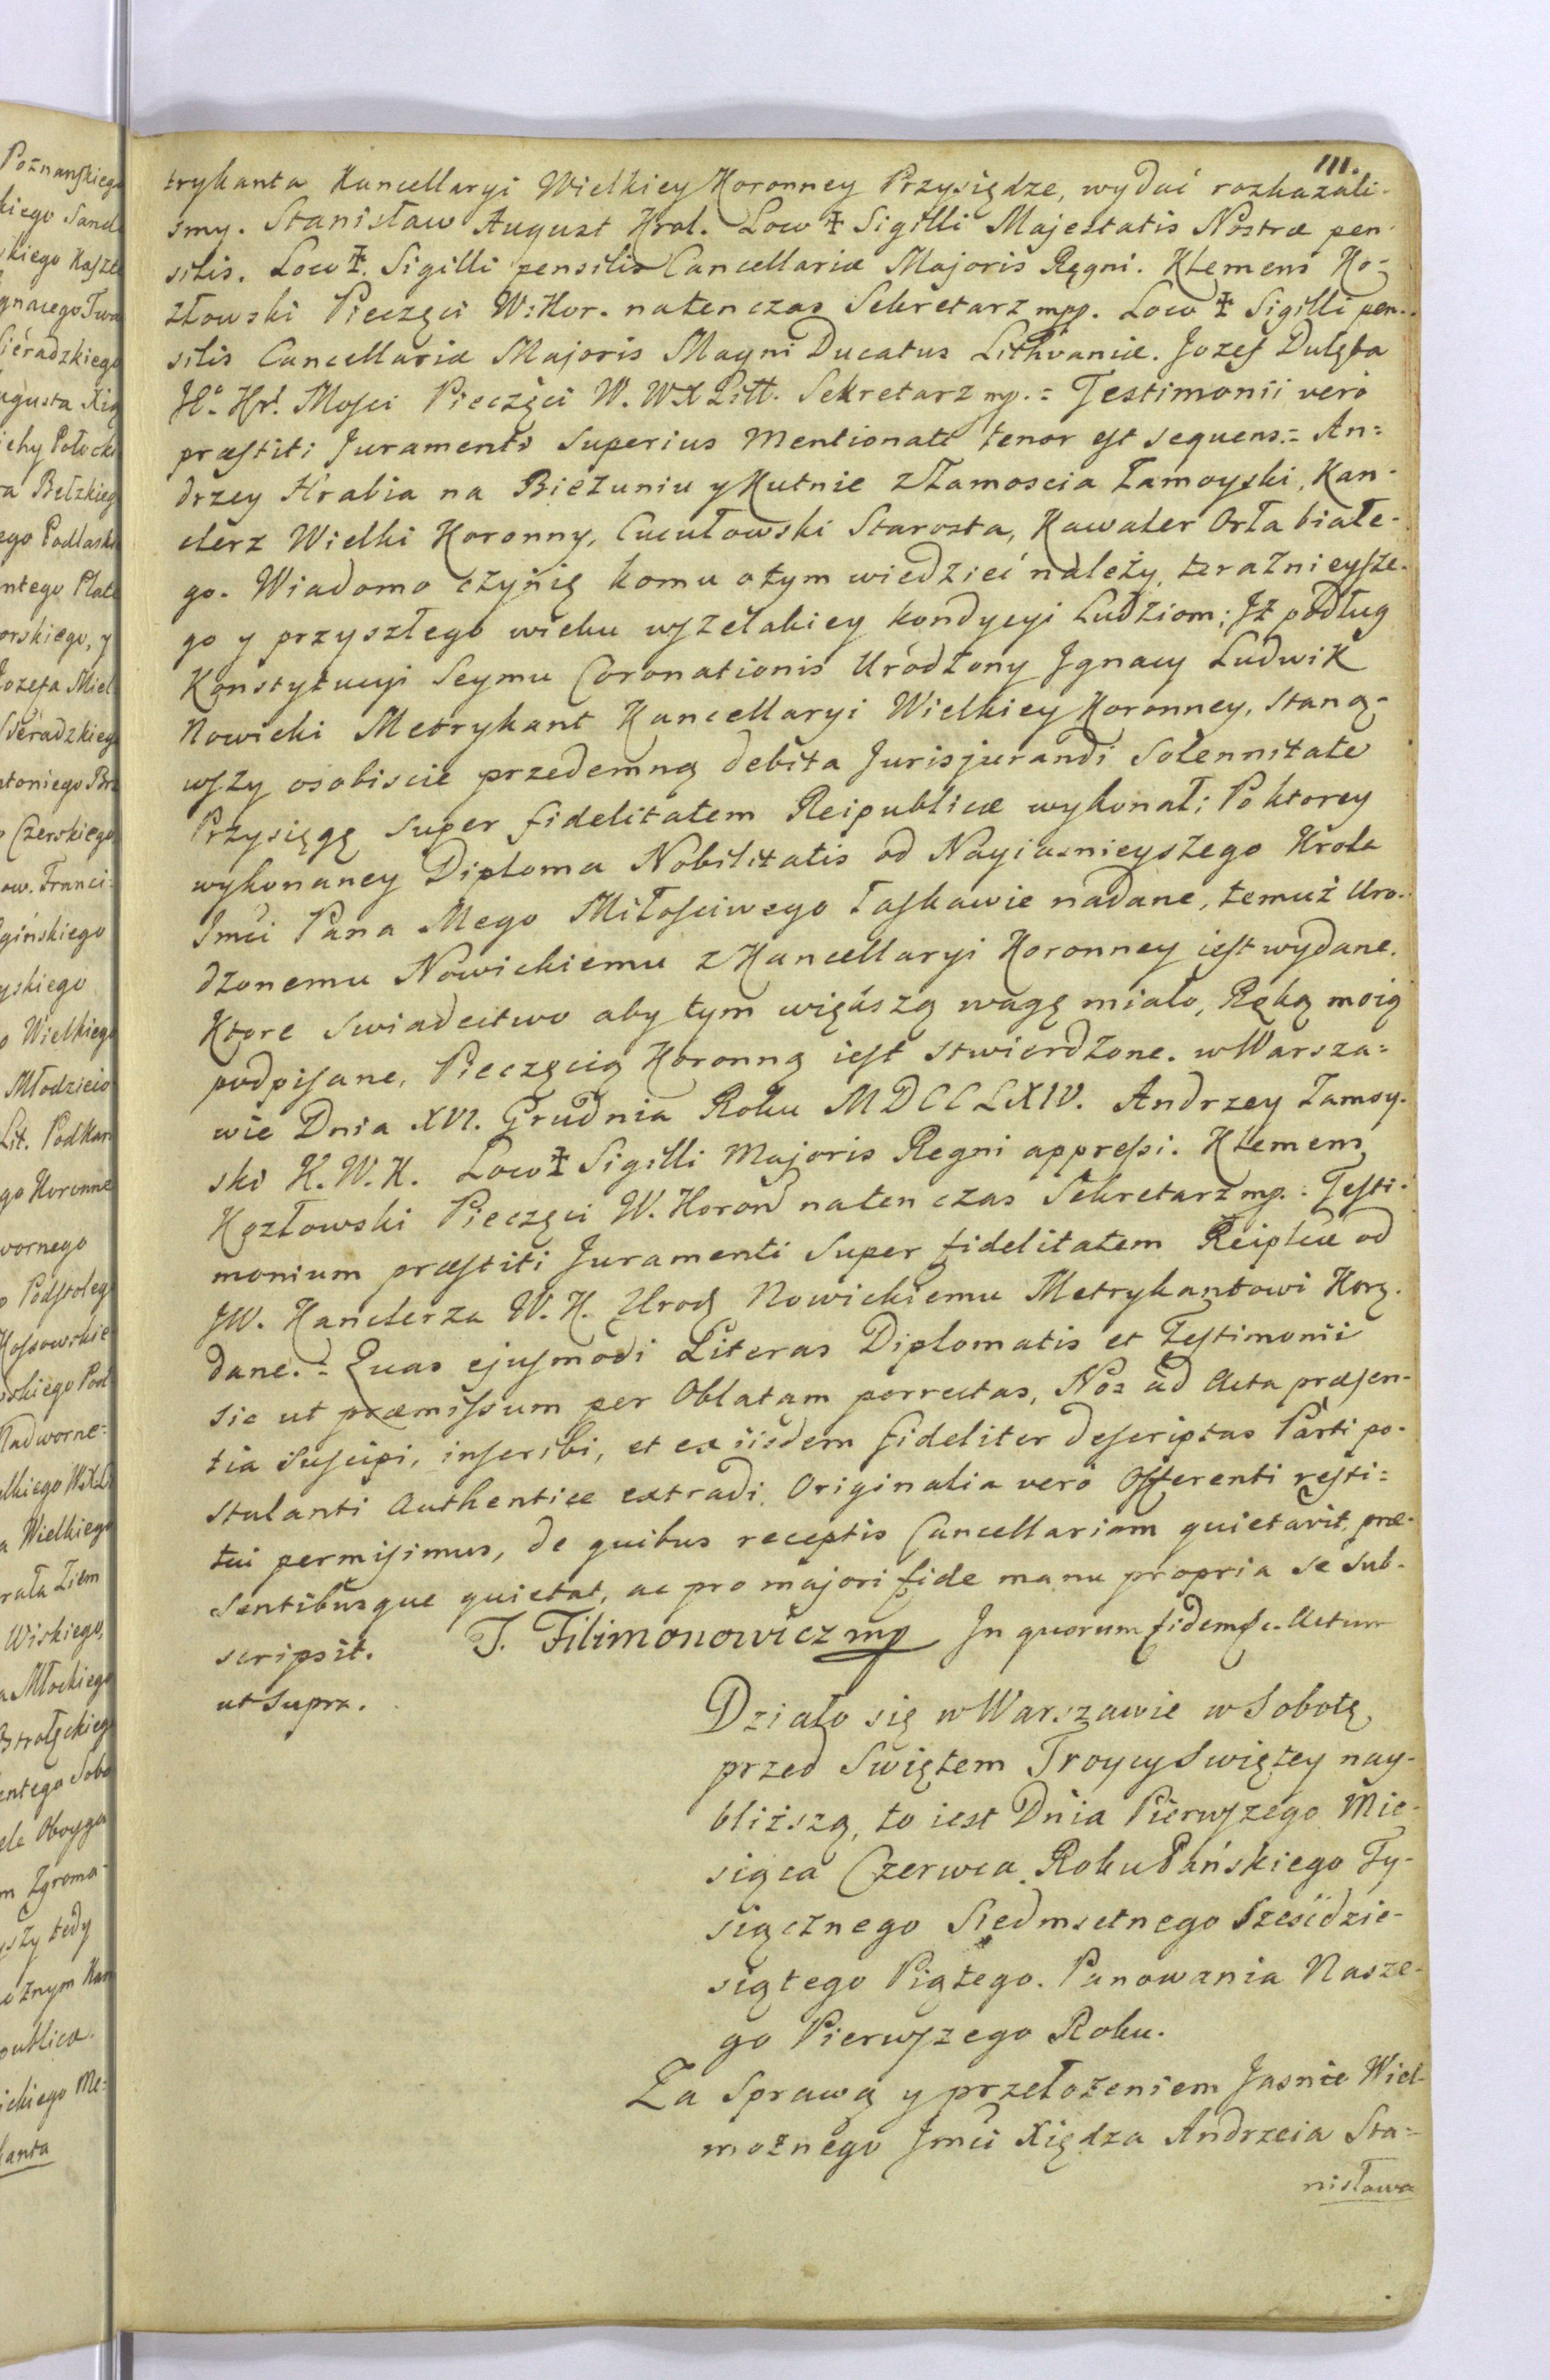 111.
trykanta Kancellaryi Wielkiey Koronney Przysiędze, wydać rozkazali-
smy. Stanisław August Krol. Locus Sigilli Majestatis Nostræ pen-
silis. Locus Sigilli pensilis Cancellariæ Majoris Regni. Klemens Ko-
złowski Pieczęci W. Kor. natenczas Sekretarz mpp. Locus Sigilli pen-
silis Cancellariæ Majoris Magni Ducatus Lithvaniæ. Jozef Dulęba
JKr. Mosci Pieczęci W. WXLitt. Sekretarz mp. = Testimonii verò
præstiti Juramenti Superius Mentionati tenor est sequens = An=
drzey Hrabia na Bieżuniu y Kutnie z Zamoscia Zamoyski, Kan-
clerz Wielki Koronny, Cuculowski Starosta, Kawaler Orła białe-
go. Wiadomo czynię komu o tym wiedzieć należy, teraznieysze-
go y przyszłego wieku wszelakiey kondycyi Ludziom; Jż podług
Konstytucyi Seymu Coronationis Urodzony Jgnacy Ludwik
Nowicki Metrykant Kancellaryi Wielkiey Koronney, Staną-
wszy osobiscie przedemną debita Jurisjurandi Solennitate
Przysięgę super fidelitatem Reipublicæ wykonał; Po ktorey
wykonaney Diploma Nobilitatis od Nayiasnieyszego Krola
Jmci Pana Mego Miłosciwego łaskawie nadane, temuż Uro-
dzonemu Nowickiemu z Kancellaryi Koronney iest wydane.
Ktore swiadectwo aby tym większą wagę miało, Ręką moią
podpisane, Pieczęcią Koronną iest stwierdzone. w Warsza=
wie Dnia XVI. Grudnia Roku MDCCLXIV. Andrzey Zamoy-
ski K. W. K. Locus Sigilli Majoris Regni appressi. Klemens
Kozłowski Pieczęci W. Koron natenczas Sekretarz mp. = Testi-
monium præstiti Juramenti Super fidelitatem Reiplicæ od
JW. Kanclerza W. K. Urodz Nowickiemu Metrykantowi Korn.
dane. = Quas ejusmodi Literas Diplomatis et Testimonii
sic ut præmissum per Oblatam porrectas, Nos ad Acta præsen-
tia suscipi, inscribi, et ex iisdem fideliter descriptas Parti po-
stulanti Authentice extradi. Originalia verò Offerenti resti=
tui permisimus, de quibus receptis Cancellariam quietavit, præ-
sentibusque quietat, ac pro majori fide manu propria se sub-
scripsit. T. Filimonowicz mp Jn quorum fidem &c. Actum
ut Supra.
Działo się w Warszawie w Sobotę
przed Swiętem Troycy Swiętey nay-
bliższą, to iest Dnia Pierwszego Mie-
siąca Czerwca Roku Pańskiego Ty-
siącznego Siedmsetnego Sześćdzie-
siątego Piątego. Panowania Nasze-
go Pierwszego Roku.
Za Sprawą y przełożeniem Jasnie Wiel-
możnego Jmci Xiędza Andrzeia Sta=
nisława